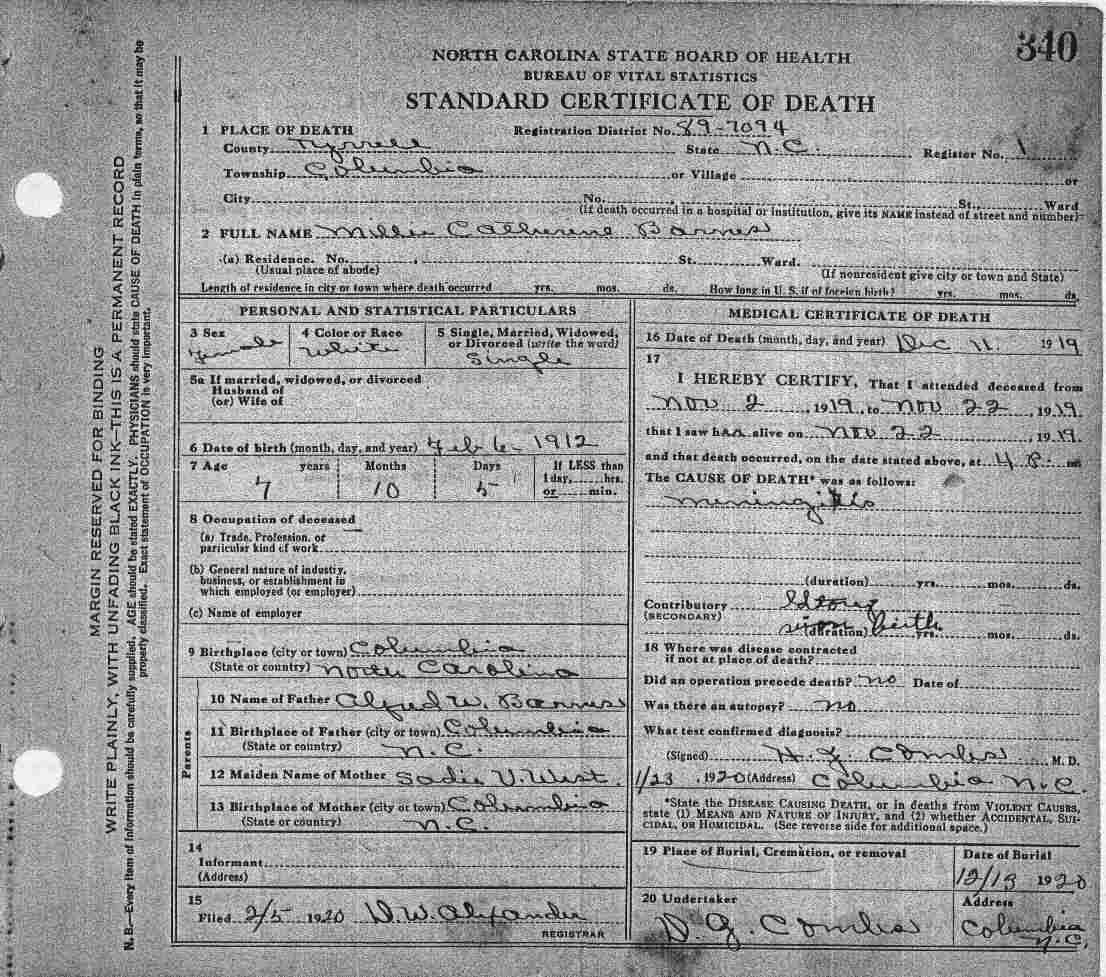 340
NORTH CAROLINA STATE BOARD OF HEALTH
BUREAU OF VITAL STATISTICS
STANDARD CERTIFICATE OF DEATH
1 PLACE OF DEATH Registration District No. 89-7094
County Tyrrell State N.C. Register No. 1
Township Columbia or Village or
City No. St., Ward
(If death occurred in a hospital or institution, give its NAME instead of street and number)
2 FULL NAME Millie Catherine Barnes
(a) Residence. No. St. Ward.
(Usual place of abode) (If nonresident give city or town and State)
Length of residence in city or town where death occurred yrs. mos. ds. How long in U. S. if of foreign birth? yrs. mos. ds.
PERSONAL AND STATISTICAL PARTICULARS
3 Sex 4 Color or Race 5 Single, Married, Widowed,
or Divorced (write the word)
Female White Single
5a If married, widowed, or divorced
Husband of
(or) Wife of
6 Date of birth (month, day, and year) Feb 6 - 1912
7 Age years Months Days If LESS than
1 day, hrs.
7 10 5 or min.
8 Occupation of deceased
(a) Trade, Profession, or
particular kind of work
(b) General nature of industry,
business, or establishment in
which employed (or employer)
(c) Name of employer
9 Birthplace (city or town) Columbia
(State or country) North Carolina
Parents
10 Name of Father Alfred W. Barnes
11 Birthplace of Father (city or town) Columbia
(State or country) N.C.
12 Maiden Name of Mother Sadie V. West
13 Birthplace of Mother (city or town) Columbia
(State or country) N.C.
14
Informant
(Address)
15
Filed 2/5 1920 D.W. Alexander
REGISTRAR
MEDICAL CERTIFICATE OF DEATH
16 Date of Death (month, day, and year) Dec 11. 1919
17
I HEREBY CERTIFY, That I attended deceased from
Nov 2, 1919, to Nov 22, 1919,
that I saw her alive on Nov 22, 1919,
and that death occurred, on the date stated above, at 4 P. m
The CAUSE OF DEATH* was as follows:
Meningitis
(duration) yrs. mos. ds.
Contributory
(SECONDARY)
birth
(duration) yrs. mos. ds.
18 Where was disease contracted
if not at place of death?
Did an operation precede death? No Date of
Was there an autopsy? No
What test confirmed diagnosis?
(Signed) Combs M. D.
1/23, 1920 (Address) Columbia N.C.
*State the DISEASE CAUSING DEATH, or in deaths from VIOLENT CAUSES,
state (1) MEANS AND NATURE OF INJURY, and (2) whether ACCIDENTAL, SUI-
CIDAL, OR HOMICIDAL. (See reverse side for additional space.)
19 Place of Burial, Cremation, or removal Date of Burial
12/13 1920
20 Undertaker Address
D. G. Combs Columbia
N.C.
MARGIN RESERVED FOR BINDING
WRITE PLAINLY, WITH UNFADING BLACK INK—THIS IS A PERMANENT RECORD
N. B.—Every item of information should be carefully supplied. AGE should be stated EXACTLY. PHYSICIANS should state CAUSE OF DEATH in plain terms, so that it may be
properly classified. Exact statement of OCCUPATION is very important.